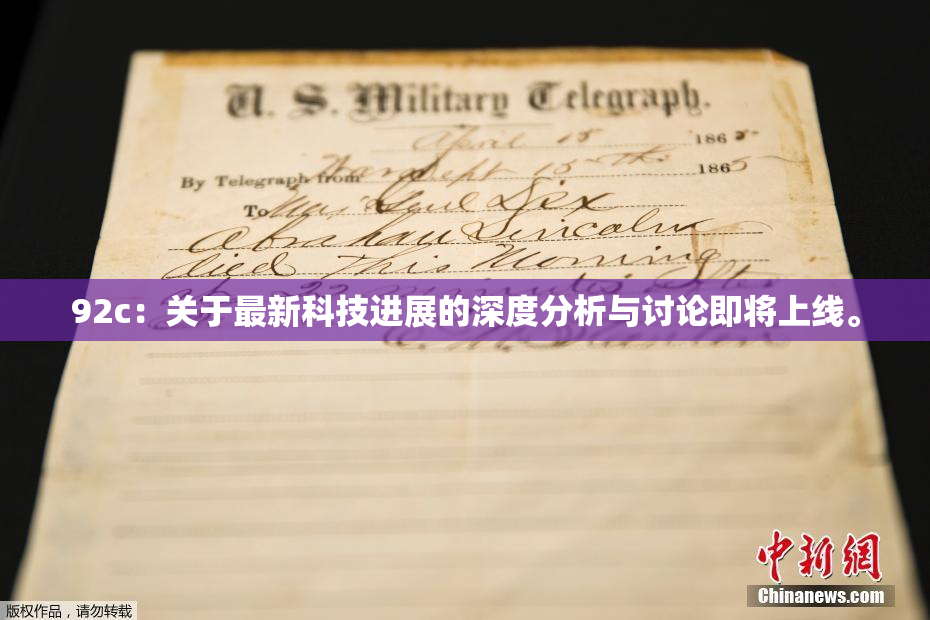 U. S. Military Telegraph.
April 15 1865
By Telegraph from War Dept 15th 1865
To Maj Genl Dix
Abraham Lincoln
died This Morning
92c：关于最新科技进展的深度分析与讨论即将上线。
Stanton
中新网
Chinanews.com
版权作品，请勿转载